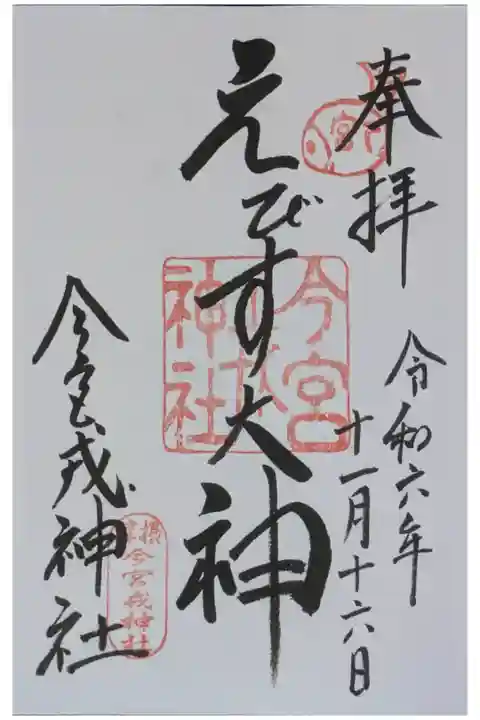 奉拝
令和六年
十一月十六日
えびす大神
今宮戎神社
今宮戎神社
今宮戎神社